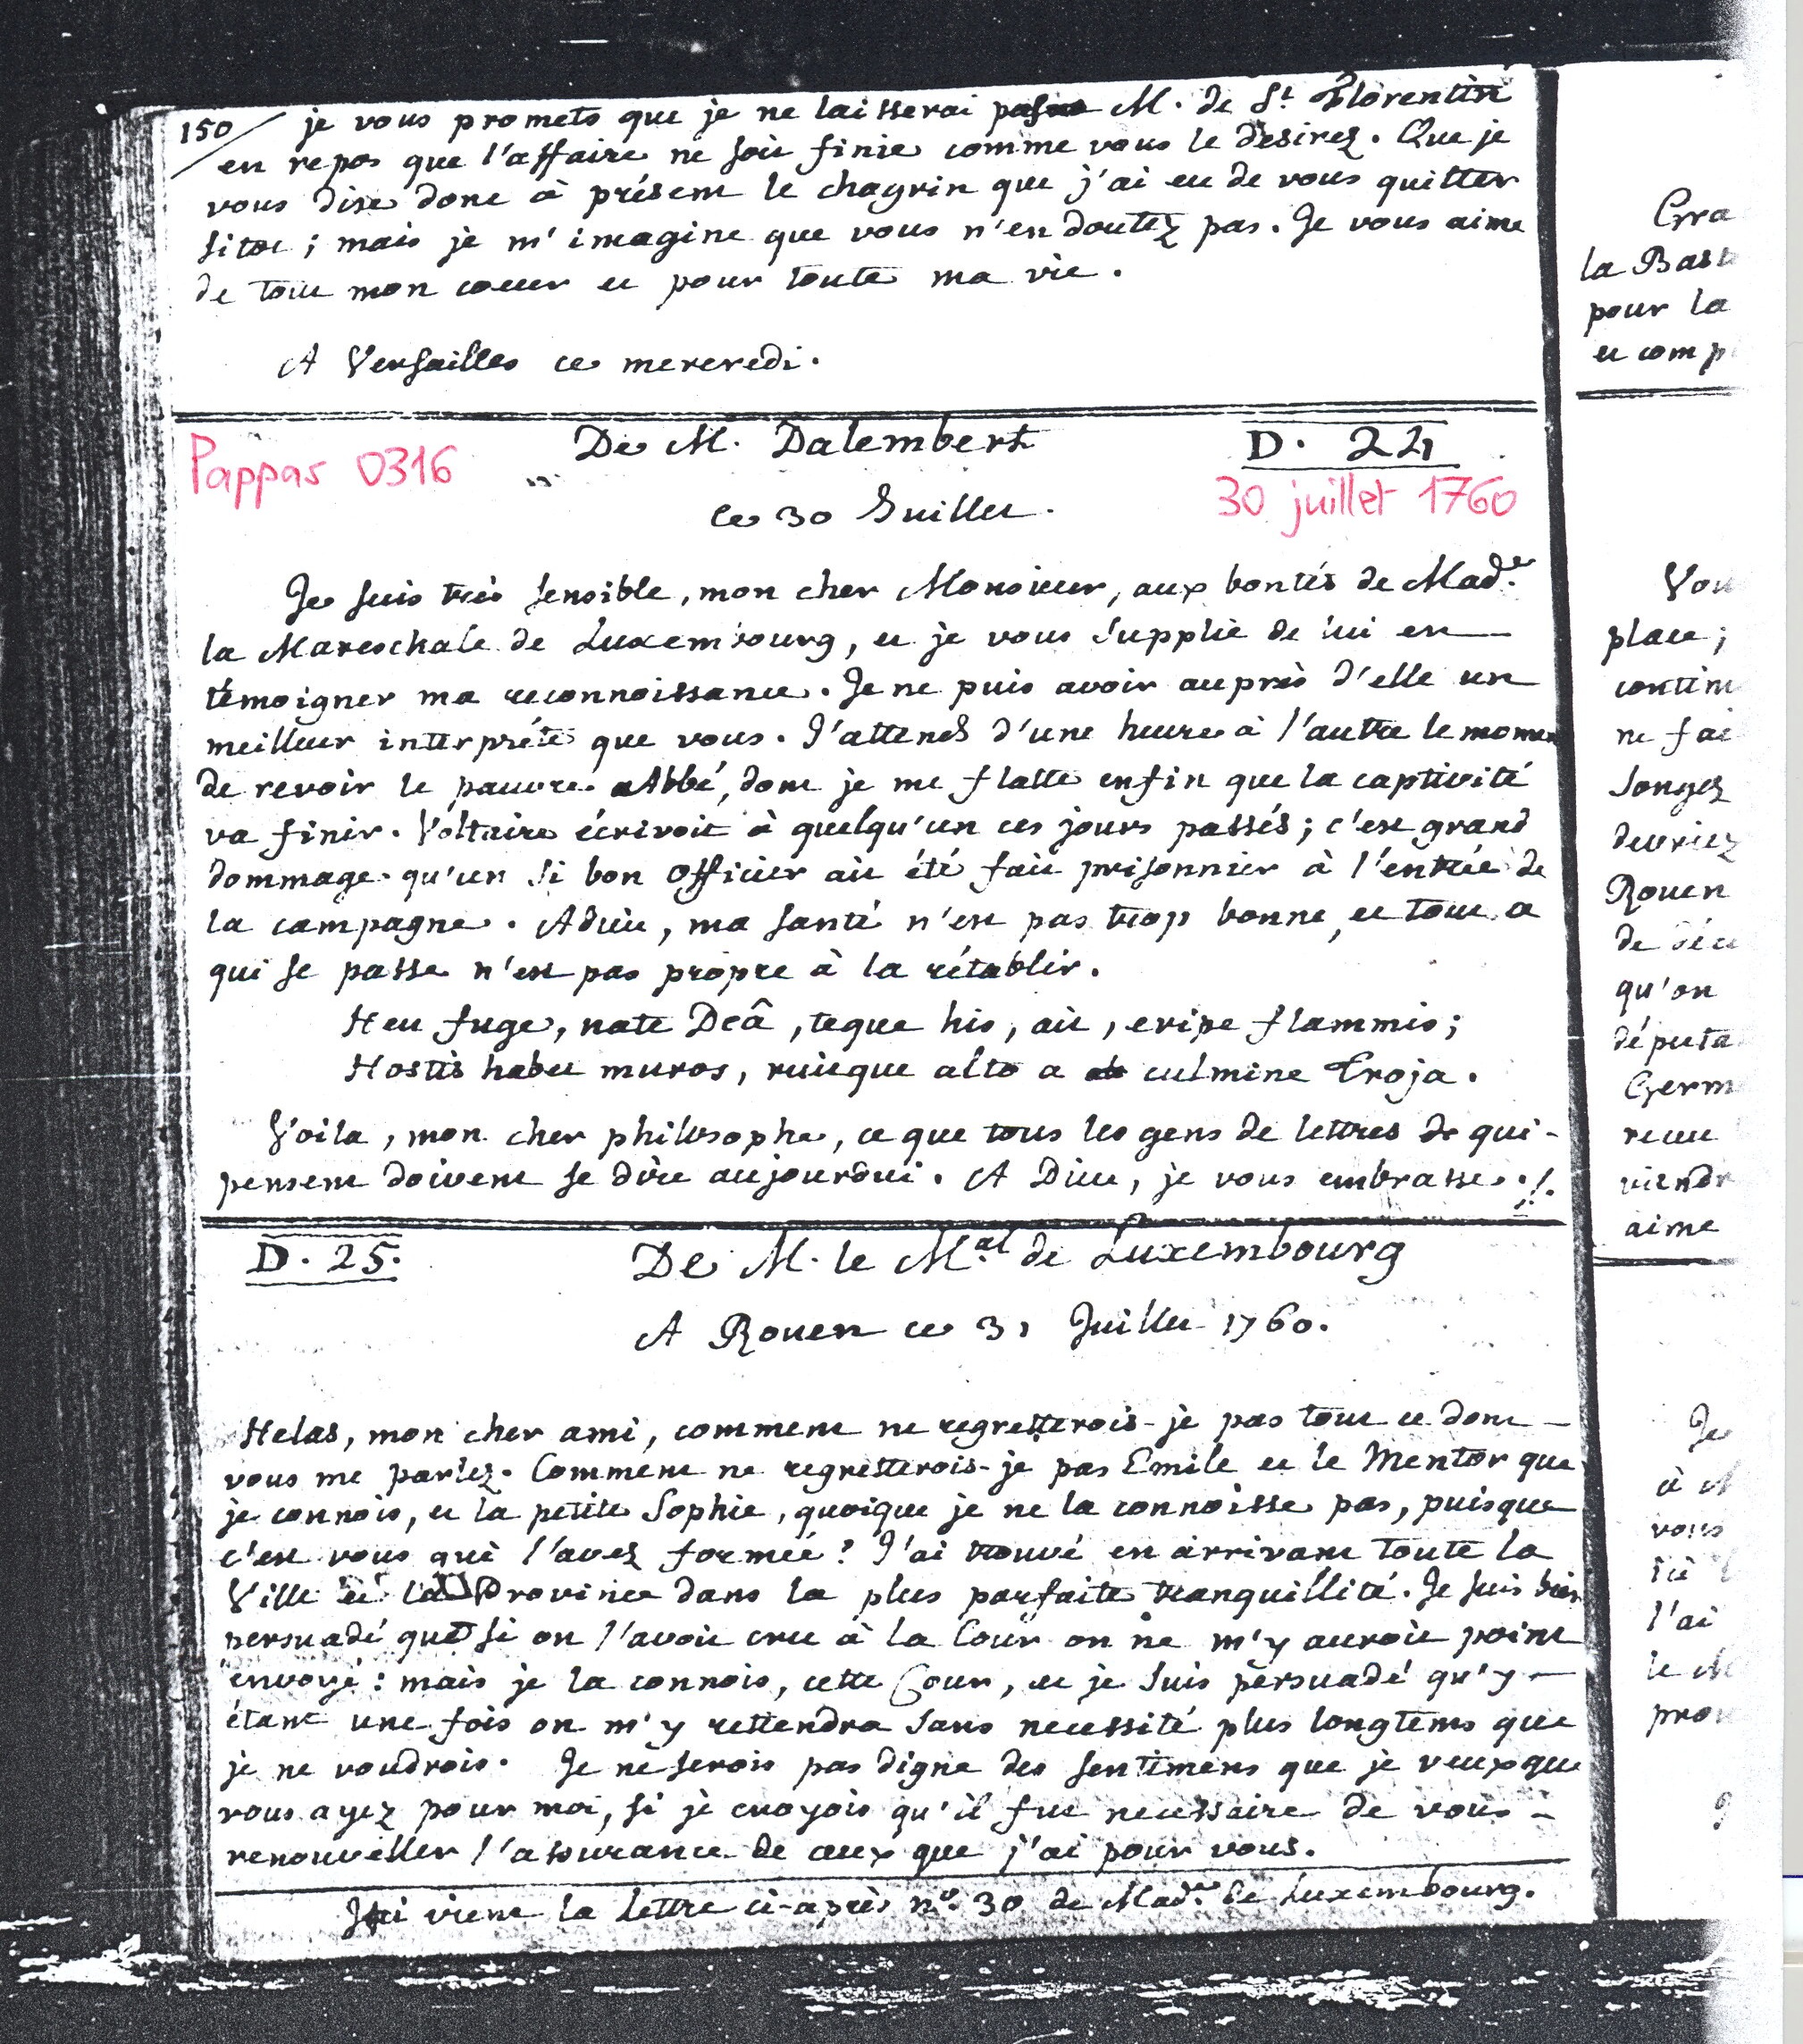 150 je vous promets que je ne laisserai pas M. de St. Florentin
en repos que l'affaire ne soit finie comme vous le desirez. Que je
vous dise donc à présent le chagrin que j'ai eu de vous quitter
sitot ; mais je m'imagine que vous n'en doutez pas. Je vous aime
de tout mon coeur et pour toute ma vie.
A Versailles ce mercredi.
De M. Dalembert
D. 24
Pappas 0316
30 juillet 1760
ce 30 Juillet.
Je suis très sensible, mon cher Monsieur, aux bontés de Made.
la Mareschale de Luxembourg, et je vous supplie de lui en
témoigner ma reconnoissance. Je ne puis avoir auprès d'elle un
meilleur interprète que vous. J'attends d'une heure à l'autre le momen
de revoir le pauvre Abbé, dont je me flatte enfin que la captivité
va finir. Voltaire écrivoit à quelqu'un ces jours passés ; c'est grand
dommage qu'un si bon Officier ait été fait prisonnier à l'entrée de
la campagne. Adieu, ma santé n'est pas trop bonne, et tout ce
qui se passe n'est pas propre à la rétablir.
Heu fuge, nate Deâ, teque his, ait, eripe flammis ;
Hostis habet muros, ruitque alto a culmine Troja.
Voila, mon cher philosophe, ce que tous les gens de lettres qui-
pensent doivent se dire aujourdui. A Dieu, je vous embrasse ./.
D. 25.
De M. le Mal. de Luxembourg
A Rouen ce 31 Juillet 1760.
Helas, mon cher ami, comment ne regretterois-je pas tout ce dont
vous me parlez. Comment ne regretterois-je pas Emile et le Mentor que
je connois, et la petite Sophie, quoique je ne la connoisse pas, puisque
c'est vous qui l'avez formée ? J'ai trouvé en arrivant toute la
Ville et la Province dans la plus parfaite tranquillité. Je suis bien
persuadé que si on l'avoit cru à la Cour on ne m'y auroit point
envoyé : mais je la connois, cette Cour, et je suis persuadé qu'y
étant une fois on m'y rettendra sans necessité plus longtems que
je ne voudrois. Je ne serois pas digne des sentimens que je veux que
vous ayez pour moi, si je croyois qu'il fut necessaire de vous
renouveller l'assurance de ceux que j'ai pour vous.
Ici vient la lettre ci-après no. 30 de Made. de Luxembourg.
la Bast
pour la
et comp
Vou
place ;
contin
ne fai
Songez
devriez
Rouen
qu'on
députa
Germ
viendr
aime
Je
vous
l'ai